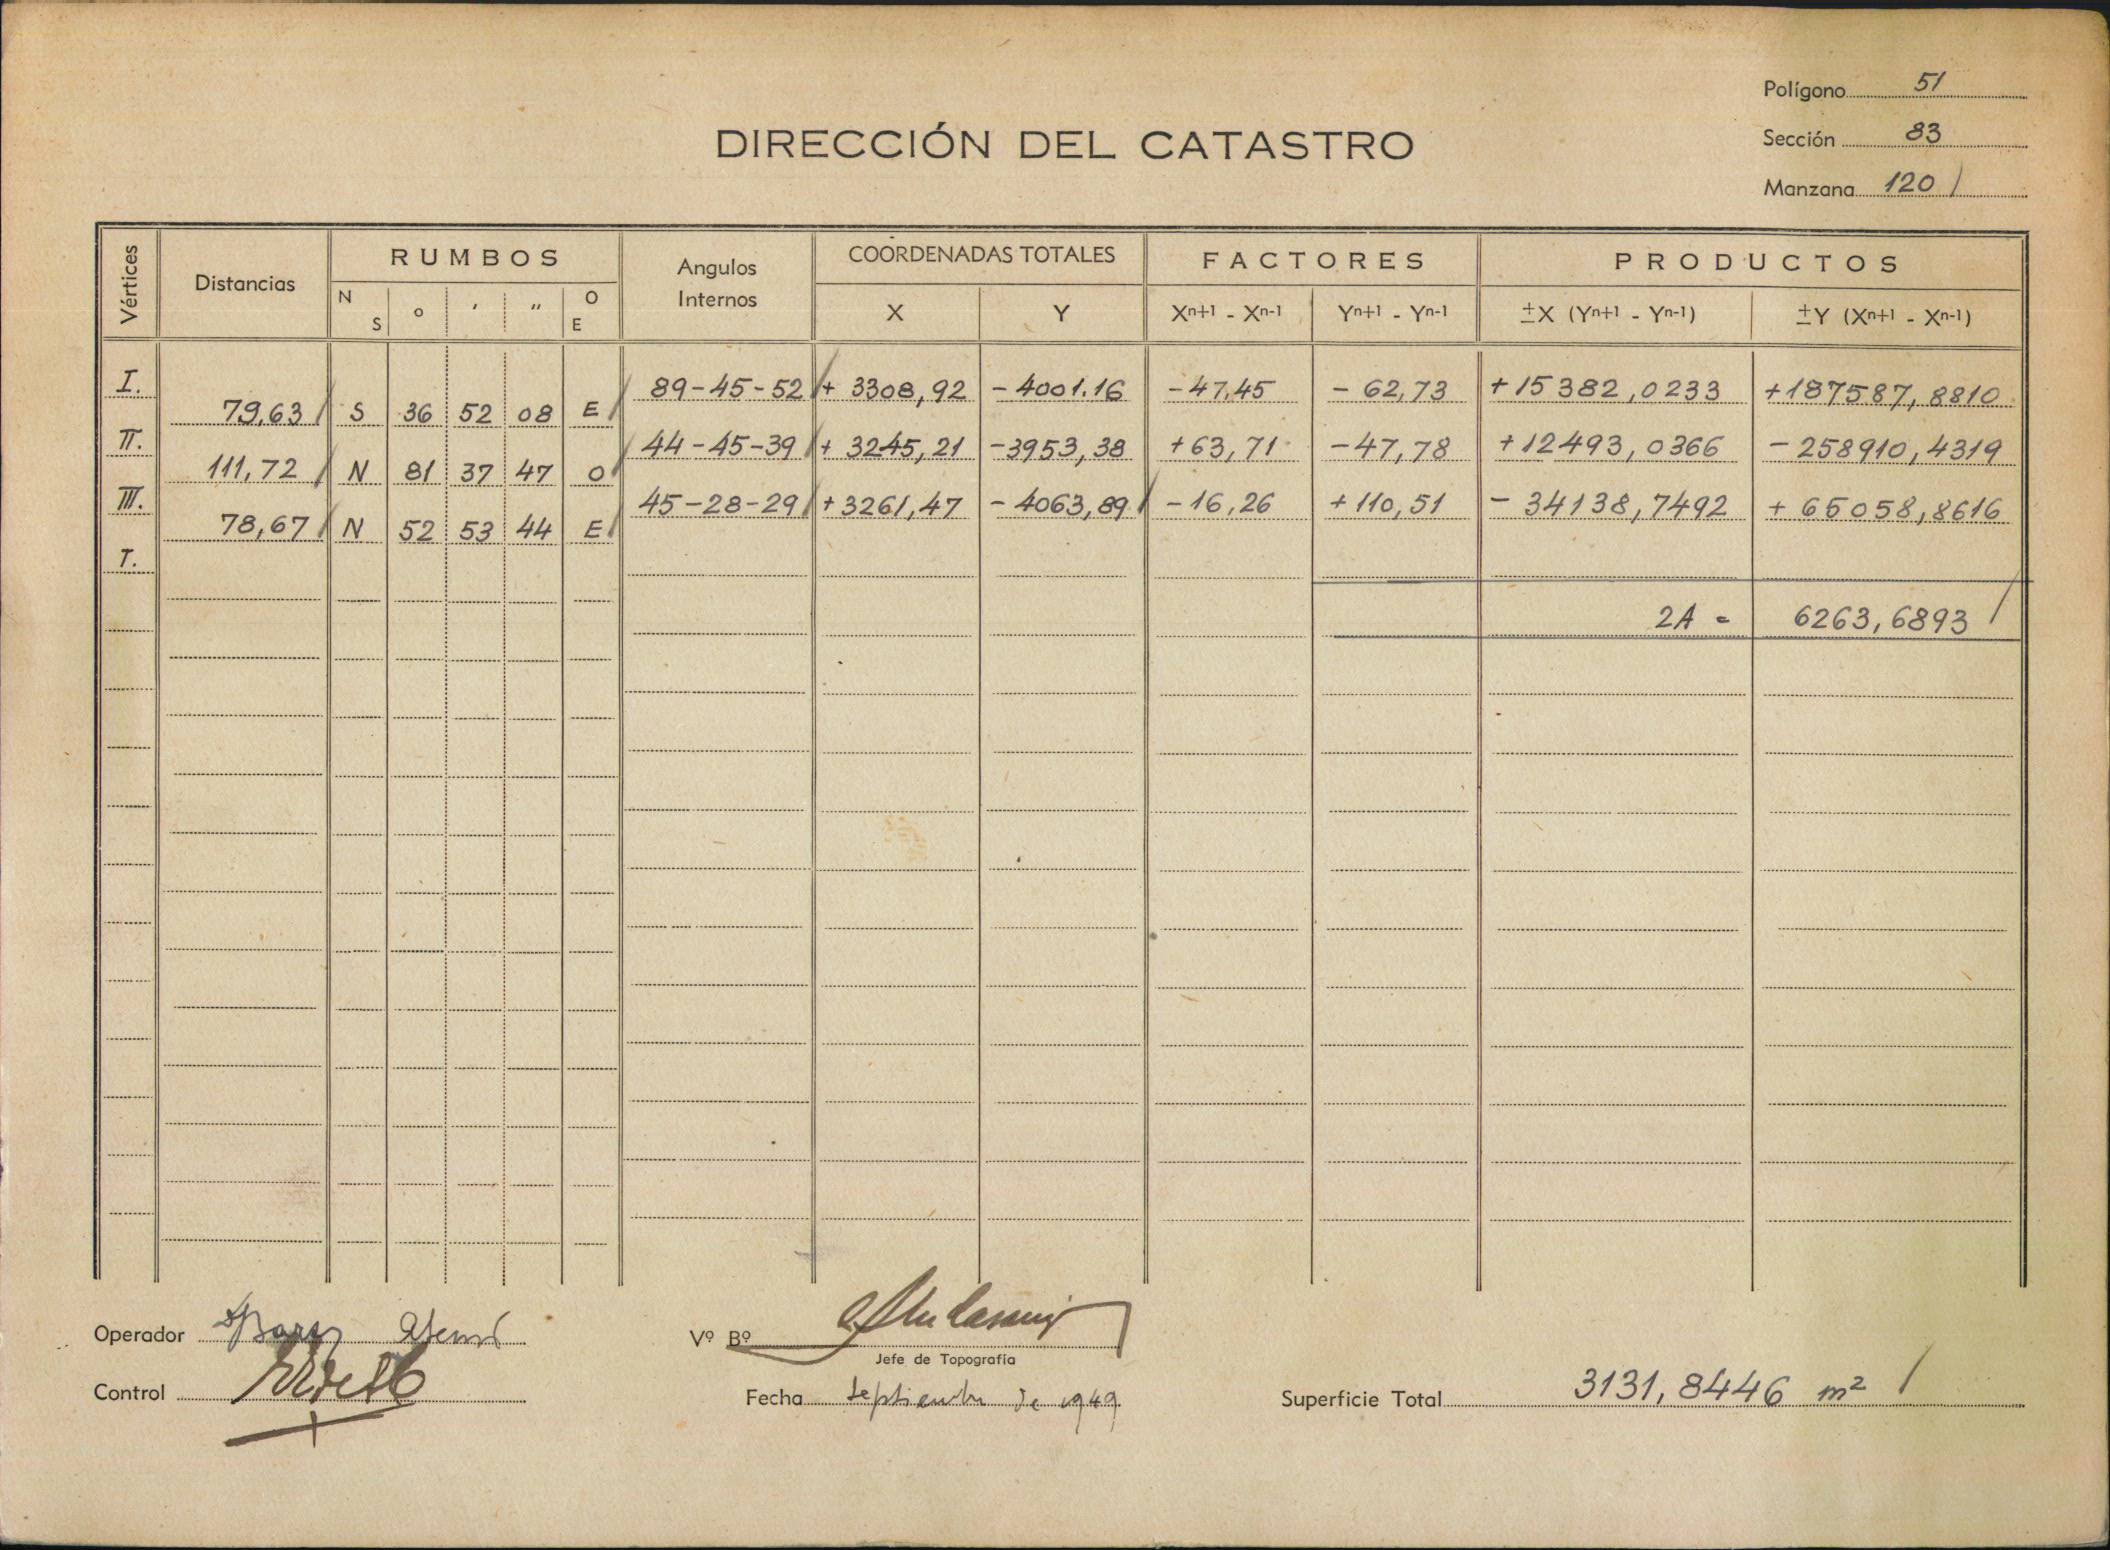 Polígono 51
DIRECCIÓN DEL CATASTRO
Sección 83
Manzana 120
Vértices Distancias RUMBOS Angulos Internos COORDENADAS TOTALES FACTORES PRODUCTOS
N S o ' " O E X Y Xn+1 - Xn-1 Yn+1 - Yn-1 ±X (Yn+1 - Yn-1) ±Y (Xn+1 - Xn-1)
I. 89-45-52 + 3308,92 - 4001.16 - 47,45 - 62,73 + 15382,0233 + 187587,8810
79,63 S 36 52 08 E
II. 44-45-39 + 3245,21 - 3953,38 + 63,71 - 47,78 + 12493,0366 - 258910,4319
111,72 N 81 37 47 O
III. 45-28-29 + 3261,47 - 4063,89 - 16,26 + 110,51 - 34138,7492 + 65058,8616
78,67 N 52 53 44 E
I.
2A = 6263,6893
Operador
Vº Bº
Jefe de Topografía
Control
Fecha Septiembre de 1949
Superficie Total 3131,8446 m²